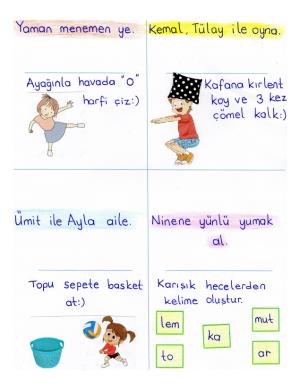 Yaman menemen ye.
Ayağınla havada "O"
harfi çiz:)
Kemal, Tülay ile oyna.
Kafana kırlent
koy ve 3 kez
çömel kalk:)
Ümit ile Ayla aile.
Topu sepete basket
at:)
Ninene yünlü yumak
al.
Karışık hecelerden
kelime oluştur.
lem
mut
ka
to
ar